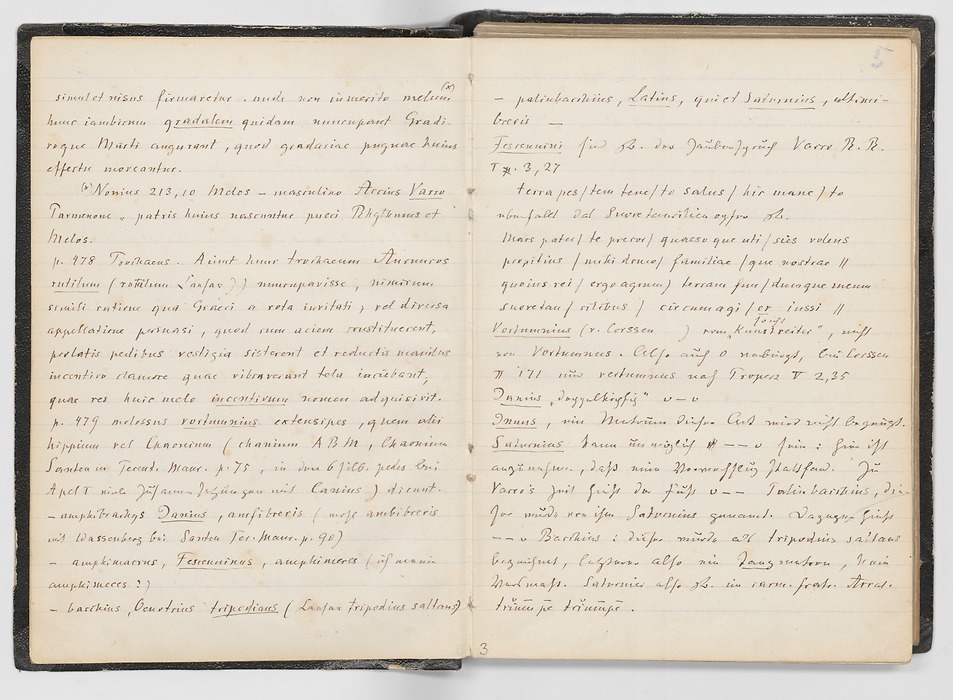 (x)
simul et nisus firmaretur. unde non inmerito melum
hunc iambicum gradalem quidam nuncupant Gradi-
voque Marti augurant, quod gradariae pugnae huius
effectu moveantur.
(x) Nonius 213,10 Melos – masculino Accius Varro
Parmenone „ patris huius nascuntur pueri Rhythmus et
Melos.
p. 478 Trochaeus. Aiunt hunc trochaeum Auruncos
rutilum ( rotulum ) nuncupavisse, nimirum
simili ratione qua Graeci a rota invitati, vel diversa
appellatione parnasi, quod cum aciem constituerent,
prolatis pedibus vestigia sisterent et reductis manibus
incentivo clamore quae vibraverant tela iaciebant,
quae res huic melo incentivum nomen adquisivit.
p. 479 molossus vortumnius extensipes, quem alii
hippium vel Chaonium ( chanium A B M, Chaonium
Santen in Terent. Maur. p. 75, in den 6 silb. pedes bei
mit Canius ) dicunt.
– amphibrachys Danius, amfibrevis ( ambibrevis
mit Wassenberg bei Santen Ter. Maur. p. 90)
– amphimacrus, Fescenninus, amphimeres ( ich meine
amphimeces ?)
– bacchius, Oenotrius tripodians ( tripodius saltans)
5
– palinbacchius, Latius, qui et Saturnius, ultimi-
brevis –
Fescennini sind der Zauberspruch Varro R. R.
I 3, 27
terra pes / tem tene / to salus / hic mane / to
ebenfalls das
Mars pater / te precor / quaeso que uti / sies volens
propitius / mihi domo / familiae / que nostrae //
quoius rei / ergo agrum / terram fun / dumque meum
suovetau / rilibus / circumagi / er iussi //
Vortumnius (v. Corssen ) vom „Kunstreiter“, nicht
von Vortumnus. Also auch o bei Corssen
II 171 und vertumnus nach Properz V 2,35
Danius „ “ ∪ – ∪
Inuus, ein Metrum dieser Art wird nicht bezeugt.
Saturnius kann unmöglich – – ∪ sein: hier ist
anzunehmen, daß eine Verwechslung stattfand. Zu
Varro's Zeit hieß der Fuß ∪ – – Palinbacchius, die-
ser wurde von ihm Saturnius genannt. Dagegen hieß
– – ∪ Bacchius: dieser wurde als tripodius saltans
bezeichnet, letzterer also ein Tanzmetrum, kein
Versmaß. Saturnier also im carm. fratr. Arval.
triumpe triumpe.
3